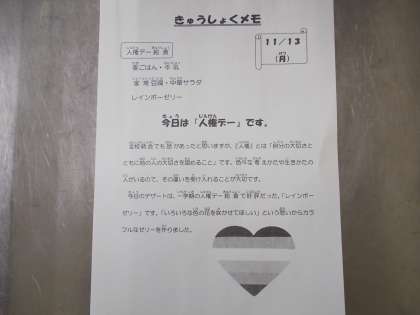 きゅうしょくメモ
11／13
（月）
人権デー給食
麦ごはん・牛乳
家常豆腐・中華サラダ
レインボーゼリー
今日は「人権デー」です。
全校朝会でも話があったと思いますが、『人権』とは「自分の大切さと
ともに他の人の大切さを認めること」です。色々な考えかたや生きかたの
人がいるので、その違いを受け入れることが大切です。
今日のデザートは、一学期の人権デー給食で好評だった、「レインボー
ゼリー」です。「いろいろな色の花を咲かせてほしい」という思いからカラ
フルなゼリーを作りました。